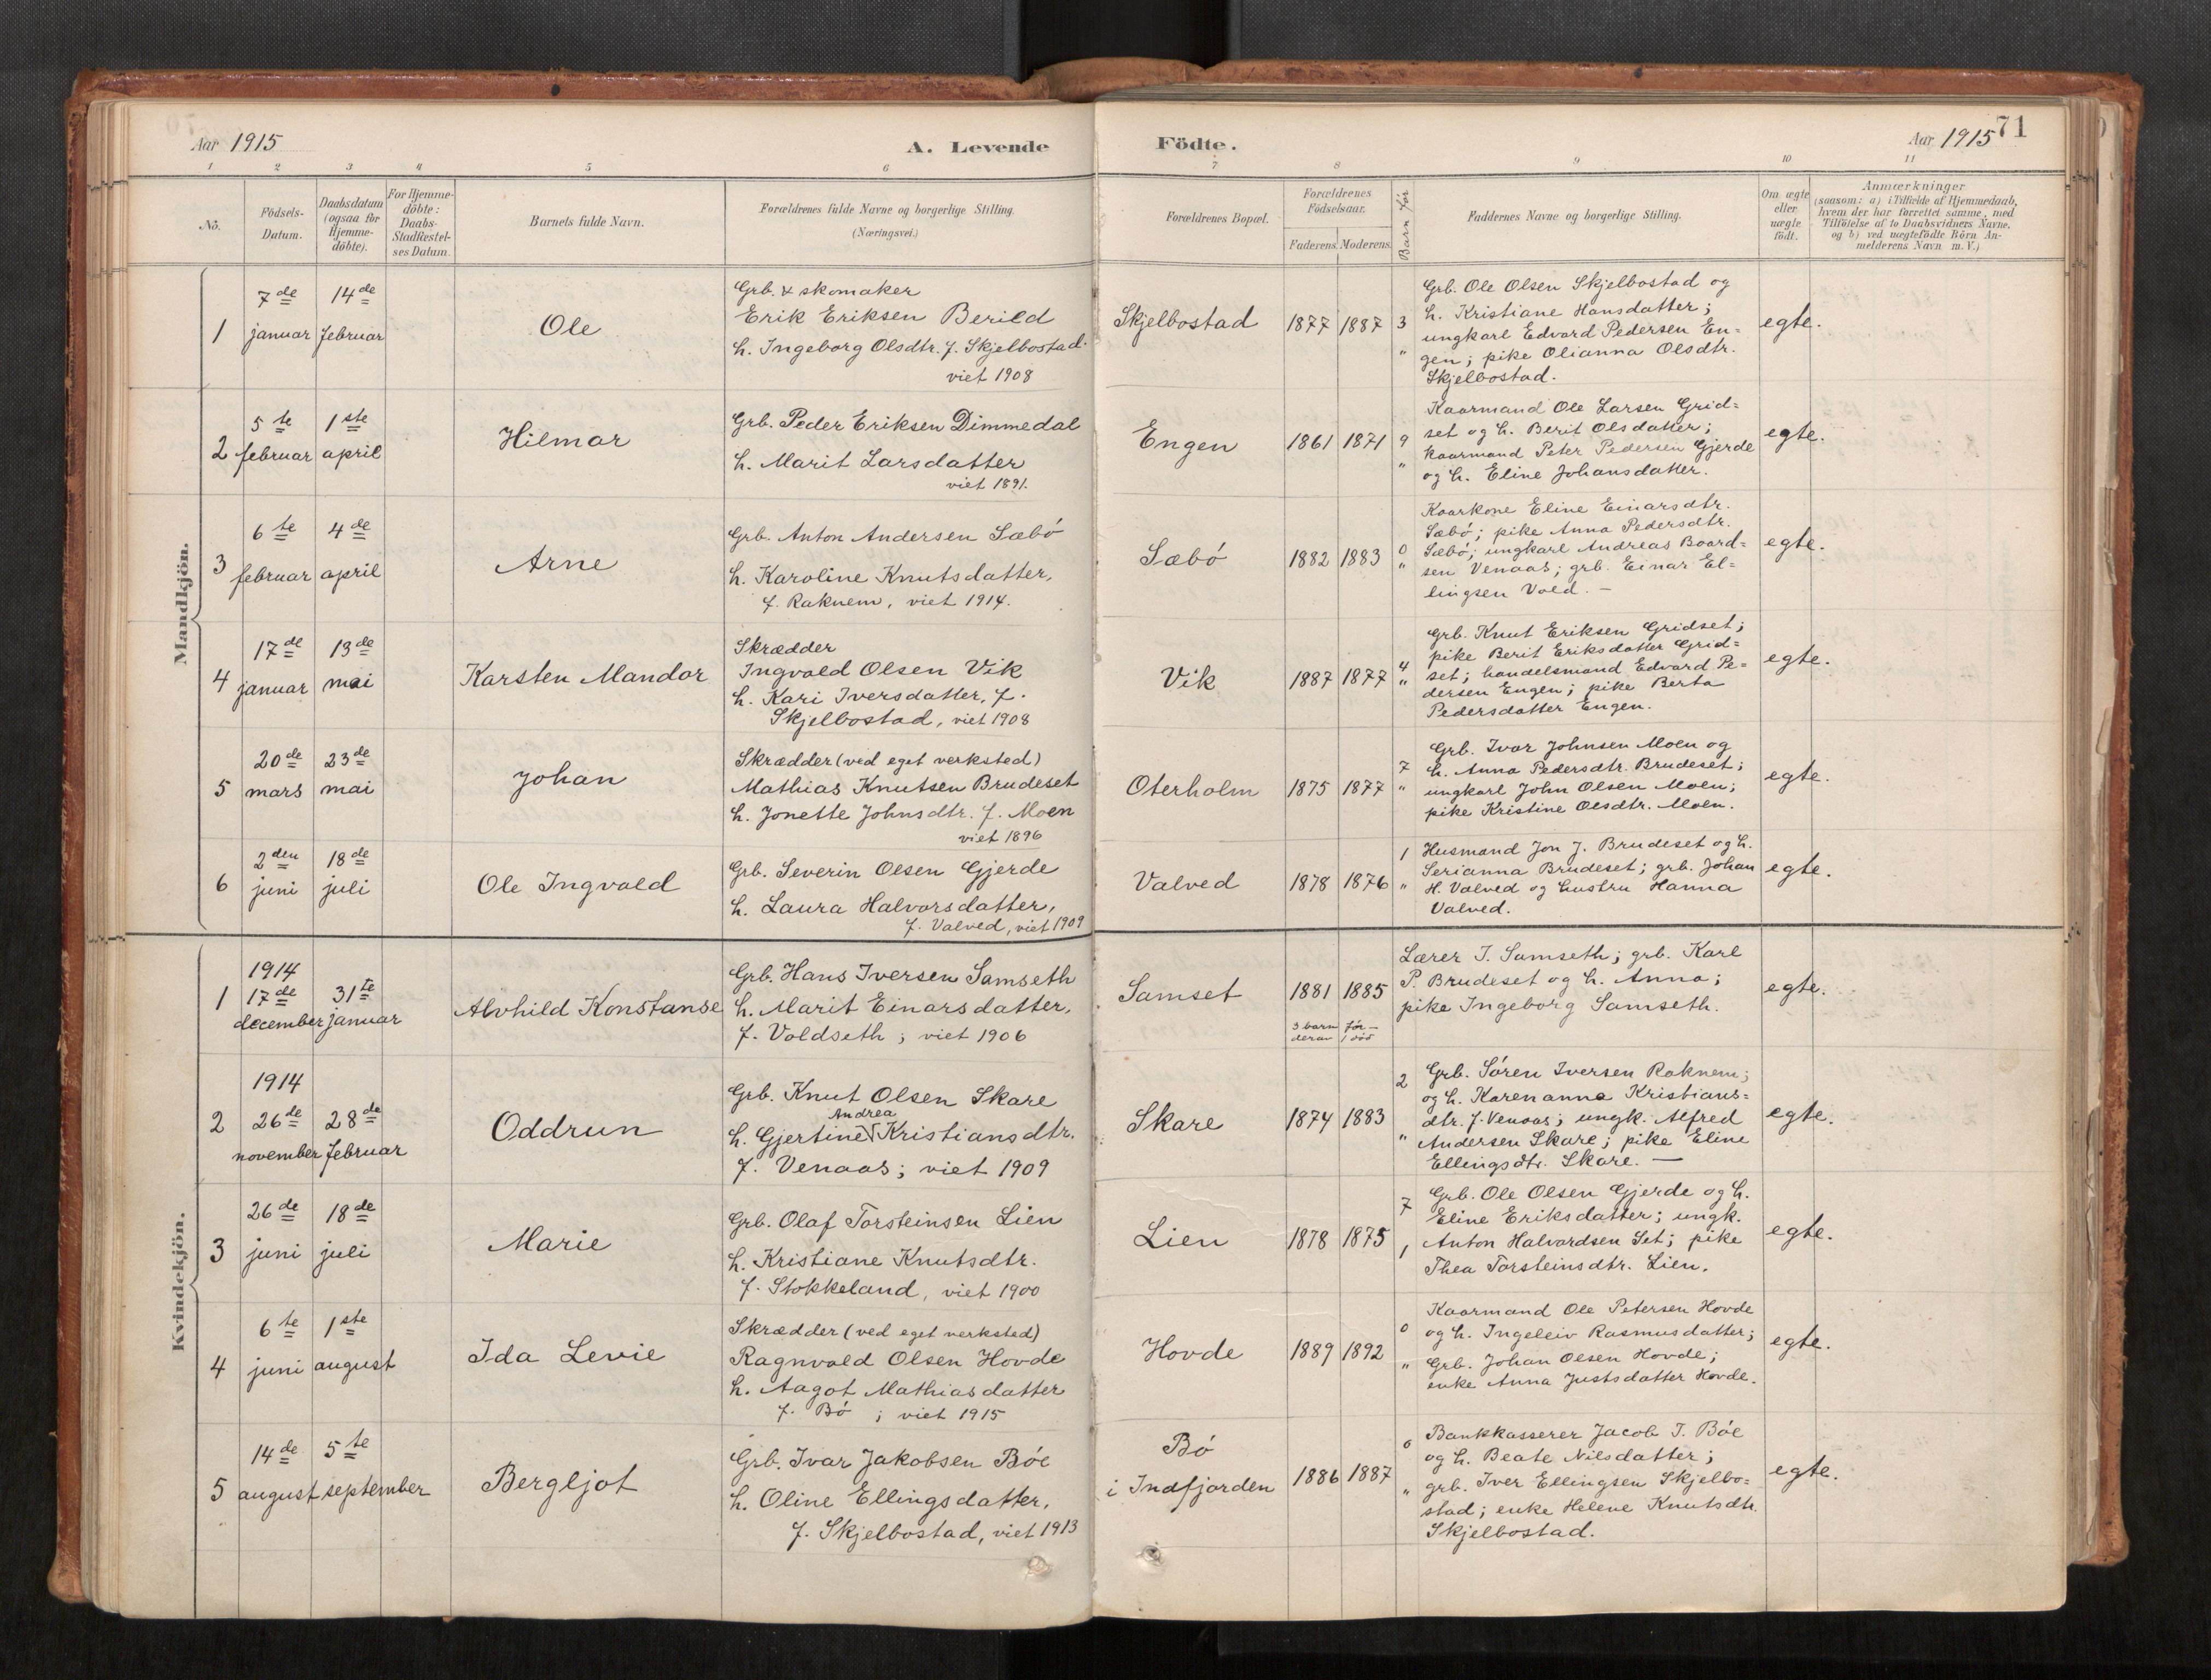 Aar 1915
A. Levende
Födte.
Aar 1915
71
1 2 3 4 5 6 7 8 9 10 11
No.
Födsels-
Datum.
Daabsdatum
(ogsaa for
Hjemme-
döbte).
For Hjemme-
döbte:
Daabs-
Stadfæstel-
ses Datum.
Barnets fulde Navn.
Forældrenes fulde Navne og borgerlige Stilling.
(Næringsvei.)
Forældrenes Bopæl.
Forældrenes
Födselsaar.
Faderens. Moderens.
Barn før
Faddernes Navne og borgerlige Stilling.
Om ægte
eller
uægte
födt.
Anmærkninger
(saasom: a) i Tilfælde af Hjemmedaab,
hvem der har forrettet samme, med
Tilföielse af to Daabsvidners Navne,
og b) ved uægtefödte Börn An-
melderens Navn m. V.)
Mandkjön.
1
7de
januar
14de
februar
Ole
Grb. & skomaker
Erik Eriksen Berild
h. Ingeborg Olsdtr. f. Skjelbostad.
viet 1908
Skjelbostad
1877 1887 3 "
Grb. Ole Olsen Skjelbostad og
h. Kristiane Hansdatter;
ungkarl Edvard Pedersen En=
gen; pike Olianna Olsdtr.
Skjelbostad.
egte.
2
5te
februar
1ste
april
Hilmar
Grb. Peder Eriksen Dimmedal
h. Marit Larsdatter
viet 1891.
Engen
1861 1871 9 "
Kaarmand Ole Larsen Grid=
set og h. Berit Olsdatter;
kaarmand Peter Pedersen Gjerde
og h. Eline Johansdatter.
egte.
3
6te
februar
4de
april
Arne
Grb. Anton Andersen Sæbó
h. Karoline Knutsdatter,
f. Raknem, viet 1914.
Sæbó
1882 1883 0 "
Kaarkone Eline Einarsdtr.
Sæbó; pike Anna Pedersdtr.
Sæbó; ungkarl Andreas Baard=
sen Venaas; grb. Einar El=
lingsen Vold. –
egte.
4
17de
januar
13de
mai
Karsten Mandor
Skrædder
Ingvald Olsen Vik
h. Kari Iversdatter, f.
Skjelbostad, viet 1908
Vik
1887 1877 4 "
Grb. Knut Eriksen Gridset;
pike Berit Eriksdatter Grid=
set; handelsmand Edvard Pe=
dersen Engen; pike Berta
Pedersdatter Engen.
egte.
5
20de
mars
23de
mai
Johan
Skrædder (ved eget verksted)
Mathias Knutsen Brudeset
h. Jonette Johnsdtr. f. Moen
viet 1896
Oterholm
1875 1877 7 "
Grb. Ivar Johnsen Moen og
h. Anna Pedersdtr. Brudeset;
ungkarl John Olsen Moen;
pike Kristine Olsdtr. Moen.
egte.
6
2den
juni
18de
juli
Ole Ingvald
Grb. Severin Olsen Gjerde
h. Laura Halvorsdatter,
f. Valved, viet 1909
Valved
1878 1876 1 "
Husmand Jon J. Brudeset og h.
Serianna Brudeset; grb. Johan
H. Valved og hustru Hanna
Valved.
egte.
Kvindekjön.
1
1914
17de
december
31te
januar
Alvhild Konstanse
Grb. Hans Iversen Samseth
h. Marit Einarsdatter,
f. Voldseth; viet 1906
Samset
1881 1885
3 barn før –
derav 1 død
Lærer I. Samseth; grb. Karl
P. Brudeset og h. Anna;
pike Ingeborg Samseth.
egte.
2
1914
26de
november
28de
februar
Oddrun
Grb. Knut Olsen Skare
Andrea
h. Gjertine V Kristiansdtr.
f. Venaas; viet 1909
Skare
1874 1883 2 "
Grb. Søren Iversen Raknem;
og h. Karenanna Kristians=
dtr. f. Venaas; ungk. Alfred
Andersen Skare; pike Eline
Ellingsdtr. Skare. –
egte.
3
26de
juni
18de
juli
Marie
Grb. Olaf Torsteinsen Lien
h. Kristiane Knutsdtr.
f. Stokkeland, viet 1900
Lien
1878 1875 7 1
Grb. Ole Olsen Gjerde og h.
Eline Eriksdatter; ungk.
Anton Halvardsen Set; pike
Thea Torsteinsdtr. Lien.
egte.
4
6te
juni
1ste
august
Ida Levie
Skrædder (ved eget verksted)
Ragnvald Olsen Hovde
h. Aagot Mathiasdatter
f. Bó ; viet 1915
Hovde
1889 1892 0 "
Kaarmand Ole Petersen Hovde
og h. Ingeleiv Rasmusdatter;
Grb. Johan Olsen Hovde;
enke Anna Justsdatter Hovde.
egte.
5
14de
august
5te
september
Bergljot
Grb. Ivar Jakobsen Bóe
h. Oline Ellingsdatter,
f. Skjelbostad, viet 1913
Bó
i Indfjorden
1886 1887 0 "
Bankkasserer Jacob I. Bóe
og h. Beate Nilsdatter;
grb. Iver Ellingsen Skjelbo=
stad; enke Helene Knutsdtr.
Skjelbostad.
egte.